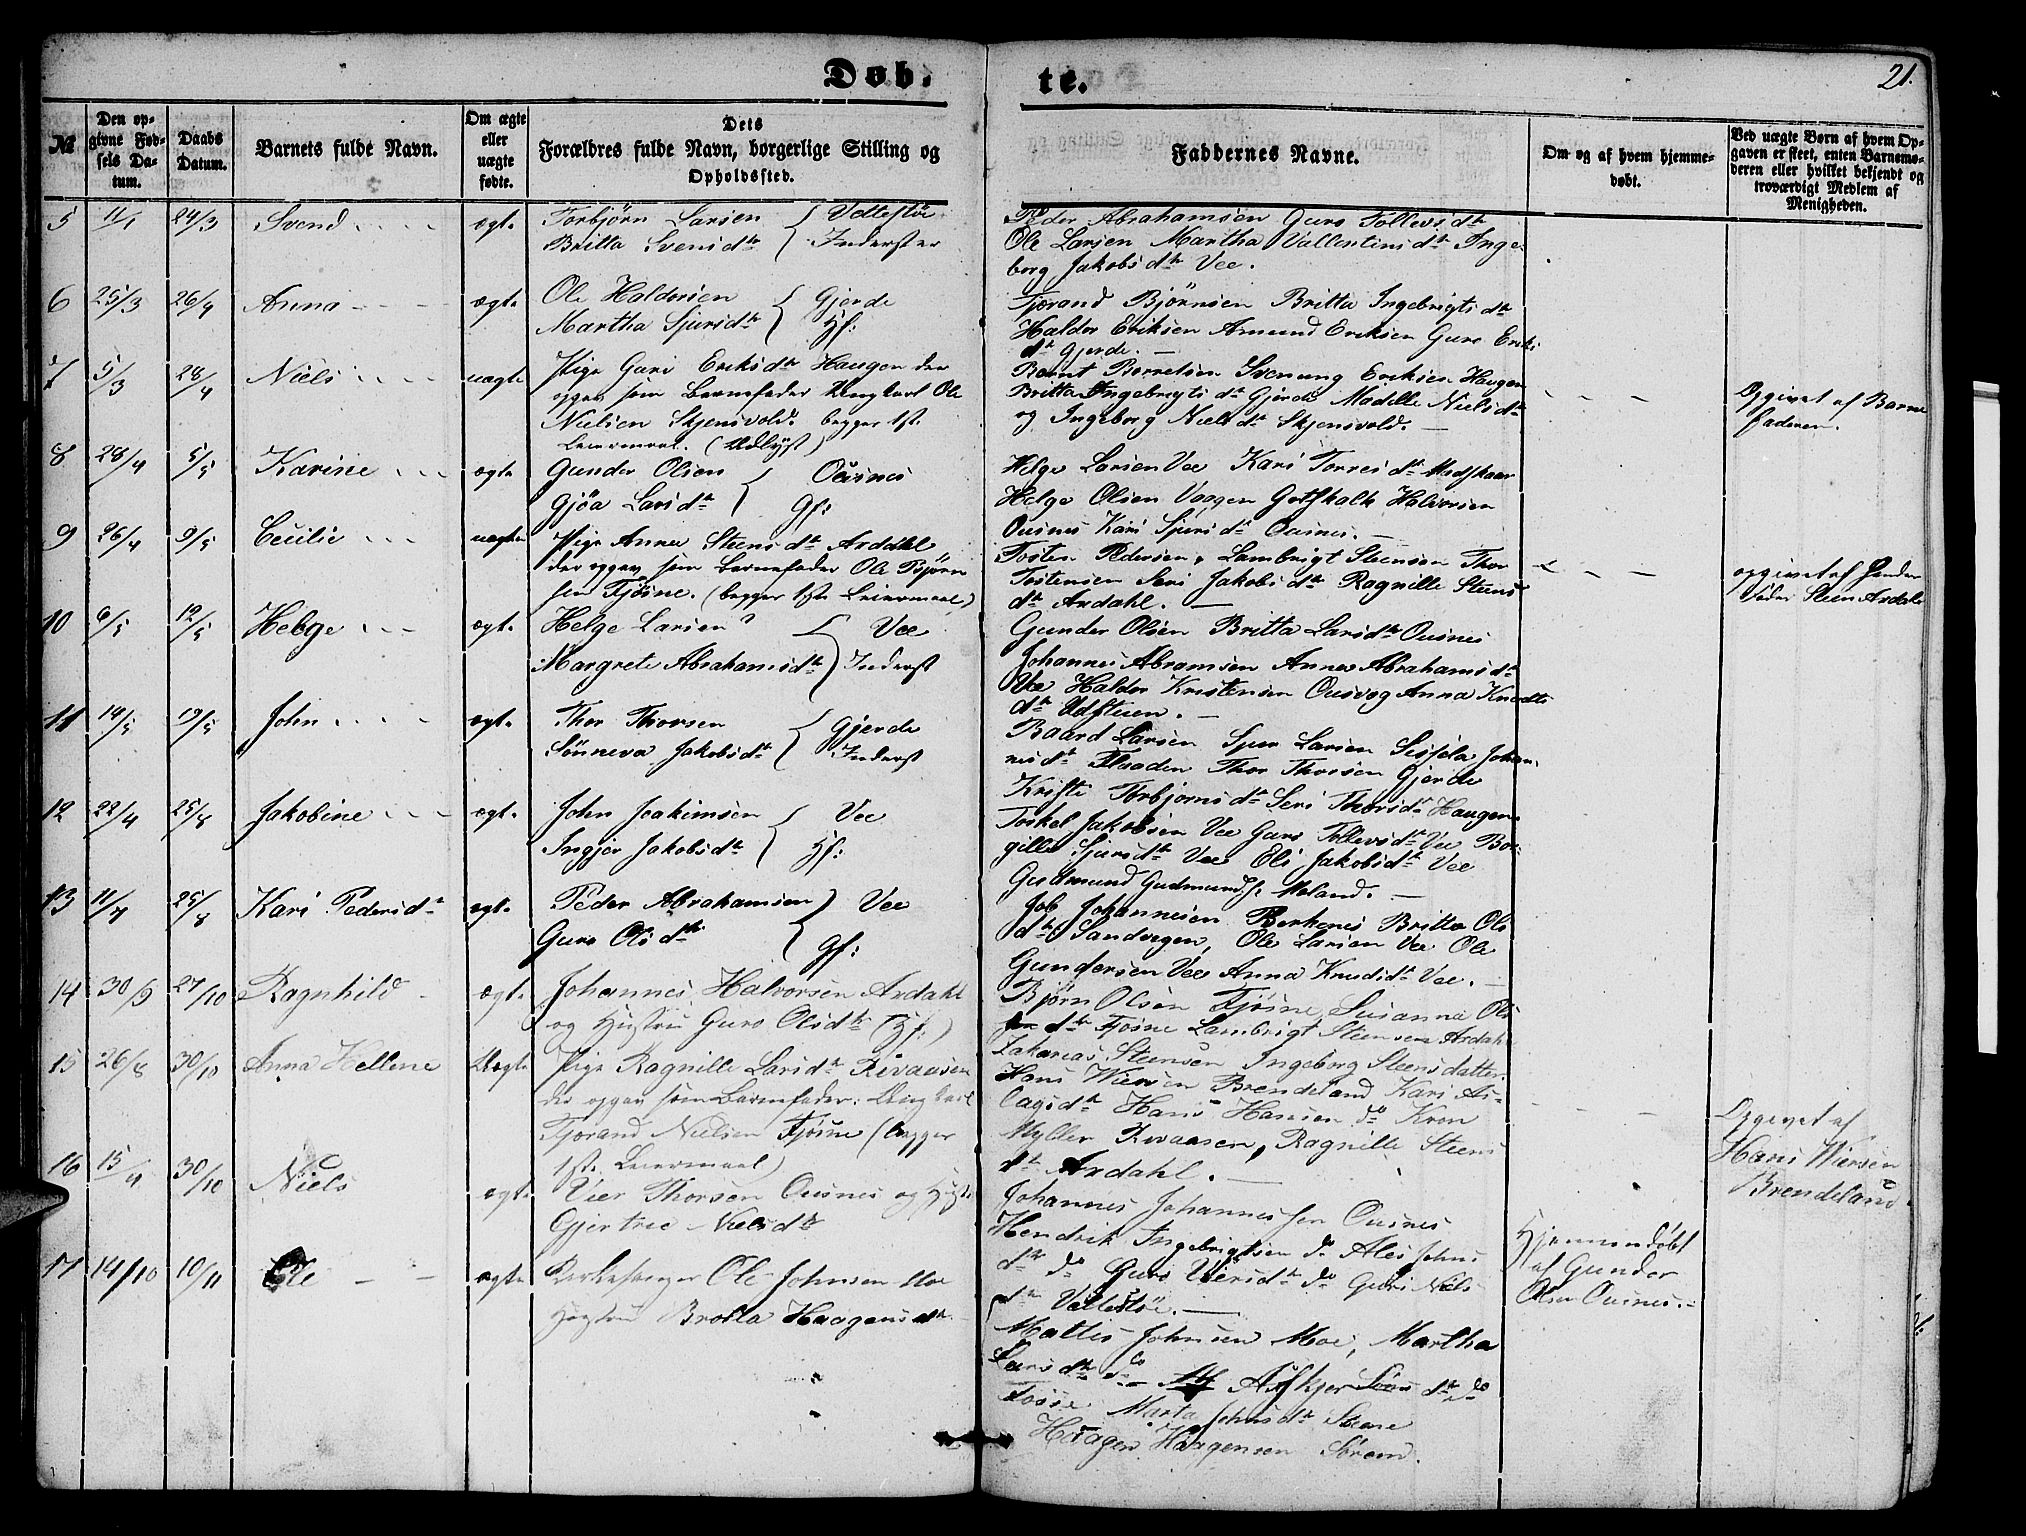 Døb.
te.
21.
№
Den op-
givne Fød-
sels Da-
tum.
Daabs
Datum.
Barnets fulde Navn.
Om ægte
eller
uægte
fødte.
Dets
Forældres fulde Navn, borgerlige Stilling og
Opholdssted.
Faddernes Navne.
Om og af hvem hjemme-
døbt.
Ved uægte Børn af hvem Op-
gaven er skeet, enten Barnemo-
deren eller hvilket bekjendt og
troværdigt Medlem af
Menigheden.
5 11/1 24/3 Svend ægte
Torbjörn Larsen Veltestöe
Britta Svensdtr Inderster
Peder Abrahamsen Guro Tollevsdtr
Ole Larsen Martha Vallentinsdtr Inge
borg Jakobsdtr Vee.
6 25/3 26/4 Anna ægte
Ole Haldorsen Gjerde
Martha Sjursdtr Hf:
Tjerand Bjørnsen Britta Ingebrigtsdtr
Haldor Eriksen Amund Eriksen Guro Eriks
dtr Gjerde.
7 5/3 28/4 Niels uægte
Pige Guri Eriksdtr Haugen der
opgav som Barnefader Ungkarl Ole
Nielsen Skjensvold. begges 1ste
Leiermaal. (Udlyst)
Berent Berretsen Svenung Eriksen Haugen
Britta Ingebrigtsdtr Gjerde Madelle Nielsdtr
og Ingeborg Nielsdtr Skjensvold.
Opgivet af Barne
faderen.
8 28/4 5/5 Karine ægte
Gunder Olsen Ousnes
Gjöa Larsdtr Gf:
Helge Larsen Vee Kari Torresdtr
Helge Olsen Vaagen Gotskalk Halvorsen
Ousnes Kari Sjursdtr Ousnes.
9 26/4 9/5 Cecilie uægte
Pige Anna Steensdtr Ardahl
der opgav som Barnefader Ole Bjørn
sen Fjøsne. (begges 1ste Leiermaal)
Tosten Pedersen, Lambrigt Steensen Thor
Tostensen Seri Jakobsdtr Ragnille Steens
dtr Ardahl.
opgivet af
fader Steen Ardahl
10 6/5 12/5 Helge ægte
Helge Larsen Vee
Margrete Abrahamsdtr Inderst
Gunder Olsen Britta Larsdtr Ousnes
Johannes Abramsen Anna Abrahamsdtr
Vee Haldor Kristensen Ousvog Anna Knuds
dtr Udsteien.
11 14/5 19/5 John ægte
Thor Thorsen Gjerde
Sönneva Jakobsdtr Inderst
Baard Larsen Sjur Larsen Sissela Johan
nesdtr Flaaden Thor Thorsen Gjerde
Kriste Torbjornsdtr Seri Thorsdtr Haugen.
12 22/4 25/8 Jakobine ægte
John Joakimsen Vee
Ingjer Jakobsdtr Hf:
Toskel Jakobsen Vee Guro Tollevsdtr Vee Bor
gille Sjursdtr Vee Eli Jakobsdtr Vee
Gudmund Gudmunds. Meland.
13 11/7 25/8 Kari Pedersdtr ægte
Peder Abrahamsen Vee
Guro Olsdtr Gf:
Job Johannesen Berkenes Britta Ols
dtr Sandvegen, Ole Larsen Vee Ole
Gundersen Vee Anna Knudsdtr Vee.
14 30/9 27/10 Ragnhild ægte
Johannes Halvorsen Ardahl
og Hustru Guro Olsdtr (Hf:)
Bjørn Olsen Fjøsne, Susanna Ols
dtr Fjøsne Lambrigt Steensen Ardahl
Zakarias Steensen Ingeborg Steensdatter
15 26/8 30/10 Anna Hellene Uægte
Pige Ragnille Larsdtr Kivaasen
der opgav som Barnefader: Ungkarl
Tjerand Nielsen Fjøsne (begges
1ste Leiermaal)
Hans Wiersen Brendeland Kari As-
lagsdtr Hans Hansen do Kron
Myller Kivaasen, Ragnille Steens
dtr Ardahl.
Opgivet af
Hans Wiersen
Brendeland
16 15/9 30/10 Niels ægte
Vier Thorsen Ousnes og Hust.
Gjertrue Nielsdtr
Johannes Johannessen Ousnes
Hendrik Ingebrigtsen do Ales Johns
dtr do Guro Viersdtr do Guri Niels
dtr Veltestöe.
Hjemmedøbt
af Gunder
Olsen Ousnes.
17 14/10 10/11 Ole ægte
Kirkesanger Ole Johnsen Moe
Hustru Brotta Haagensdtr
Mattis Johnsen Moe, Martha
Larsdtr do Askjer Larsdtr do
Fosse Marta Johnsdtr Steene
Haagen Haagensen Sørem.